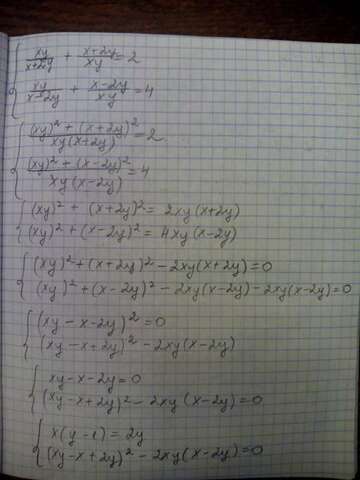 { xy/(x+2y) + (x+2y)/xy = 2
xy/(x-2y) + (x-2y)/xy = 4
{ ((xy)² + (x+2y)²)/(xy(x+2y)) = 2
((xy)² + (x-2y)²)/(xy(x-2y)) = 4
{ (xy)² + (x+2y)² = 2xy(x+2y)
(xy)² + (x-2y)² = 4xy(x-2y)
{ (xy)² + (x+2y)² - 2xy(x+2y) = 0
(xy)² + (x-2y)² - 2xy(x-2y) - 2xy(x-2y) = 0
{ (xy - x - 2y)² = 0
(xy - x + 2y)² - 2xy(x-2y)
{ xy - x - 2y = 0
(xy - x + 2y)² - 2xy(x-2y) = 0
{ x(y-1) = 2y
(xy - x + 2y)² - 2xy(x-2y) = 0